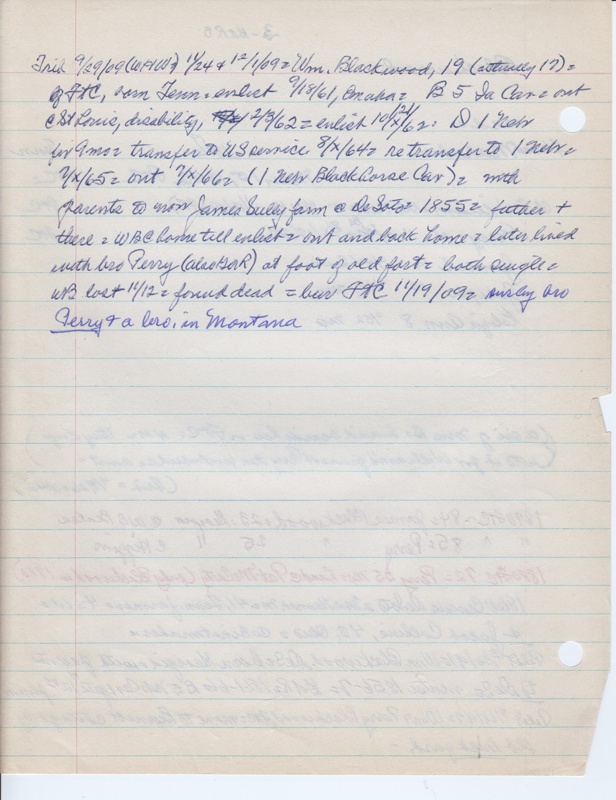 Trib 9/29/09 (WHW) 11/24 & 12/1/09 = Wm. Blackwood, 19 (actually 17) =
of FtC, born Tenn. enlist 9/18/61, Omaha = B 5 Ia Cav = out
@ St Louis, disability, 2/3/62 = enlist 10/21/62 = D 1 Nebr
for 9 mo = transfer to US service 8/x/64 = retransfer to 1 Nebr =
7/x/65 = out 7/x/66 = (1 Nebr Blackhorse Cav) = with
parents to now James Seeley farm @ DeSoto = 1855 = father +
there = WBC home till enlist = out and back home = later lived
with bro Perry (also GAR) at foot of old fort = both single =
WB lost 11/12 = found dead = bur FtC 11/19/09 = bro
Perry & a bro. in Montana